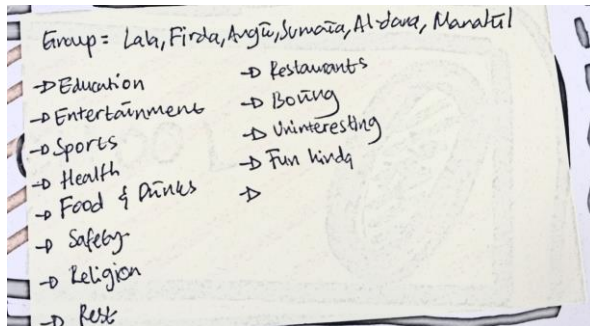 Group = Lala, Firda, Anggi, Sumaia, Aldora, Manatul
→ Education
→ Entertainment
→ Sports
→ Health
→ Food & Drinks
→ Safety
→ Religion
→ Rest
→ Restaurants
→ Boring
→ Uninteresting
→ Fun kinda
→